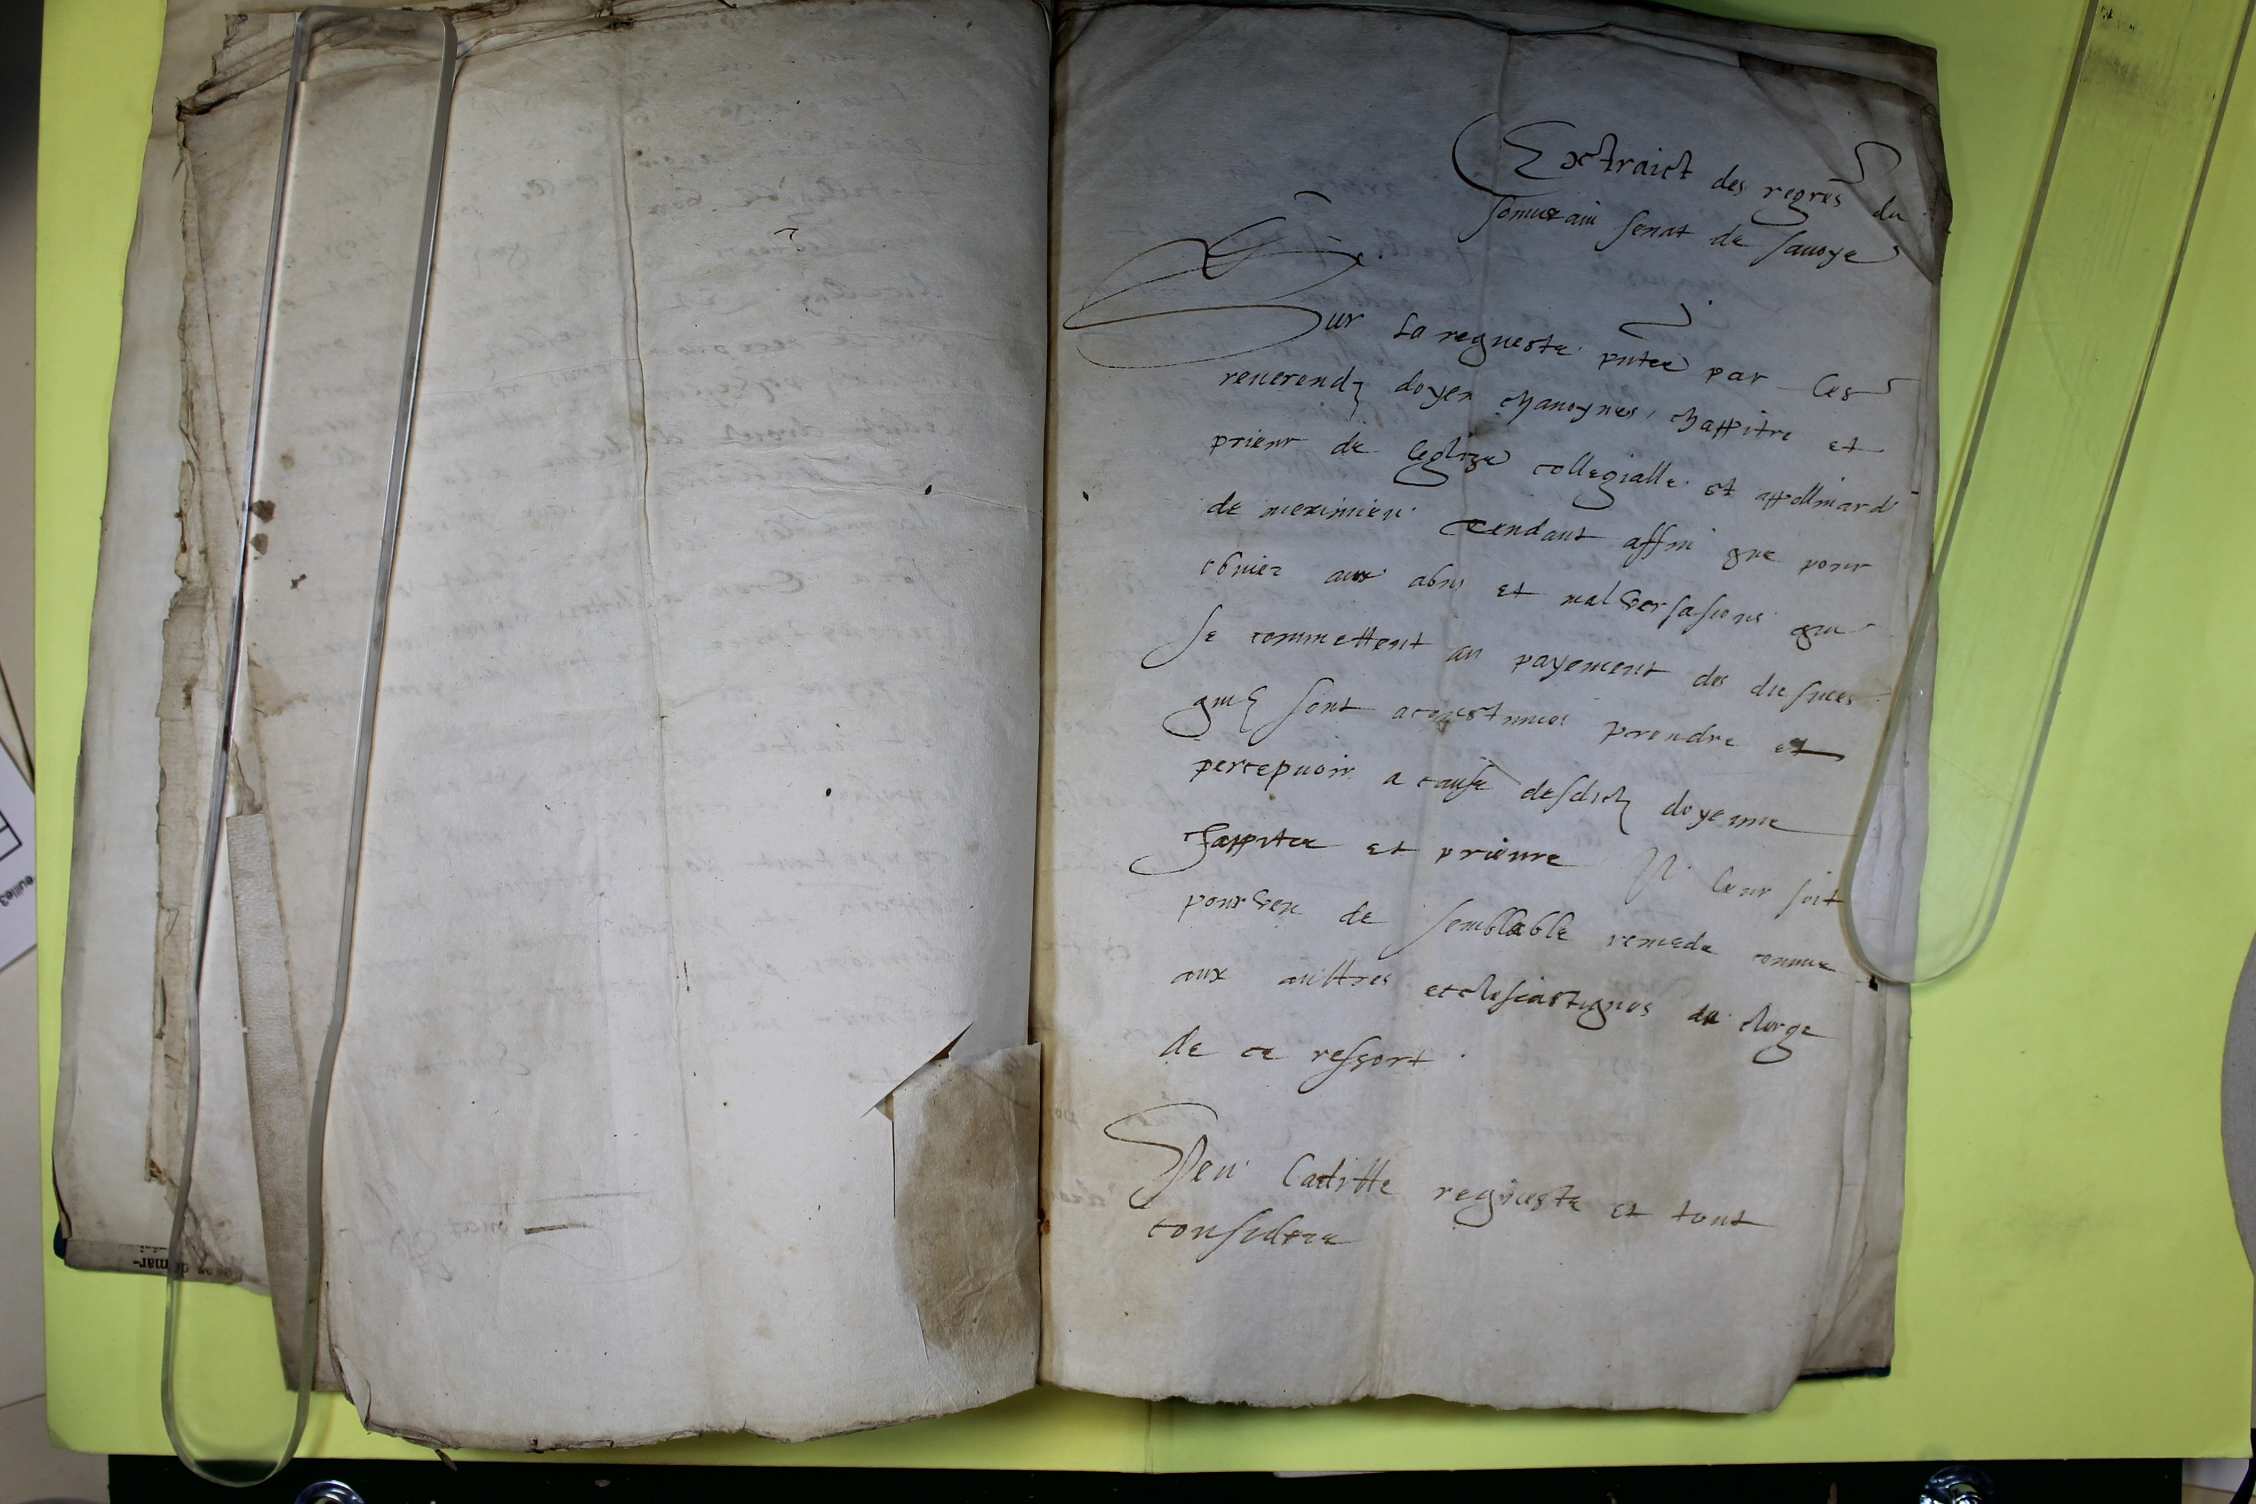 Extraict des regres du
souuerain senat de sauoye
Sur La requeste pntee par Les
reuerendz doyen chanoynes, chappitre et
prieur de leglize collegialle et
de meximieu tendant affin que pour
obuier aux abus et malversasions qui
se commettent au payement des
quilz sont acoustumes prendre et
percepuoir a cause desdictz doyenne
chappitre et prieure Il leur soit
pourveu de semblable remede comme
aux aulttres ecclesiastiques du clerge
de ce ressort.
Veu Laditte requeste et tout
considere